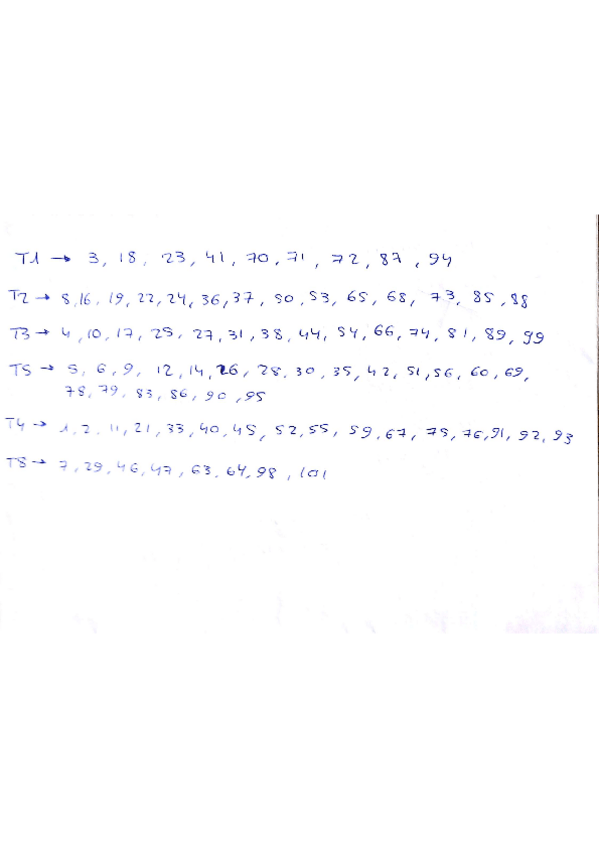 T1 → 3, 18, 23, 41, 70, 71, 72, 87, 94
T2 → 8, 16, 19, 22, 24, 36, 37, 50, 53, 65, 68, 73, 85, 88
T3 → 4, 10, 17, 25, 27, 31, 38, 44, 54, 66, 74, 81, 89, 99
T5 → 5, 6, 9, 12, 14, 26, 28. 30, 35, 42, 51, 56, 60, 69,
78, 79, 83, 86, 90, 95
T4 → 1, 2, 11, 21, 33, 40, 45, 52, 55, 59, 67, 75, 76, 91, 92, 93
T8 → 7, 29, 46, 47, 63, 64, 98, 101